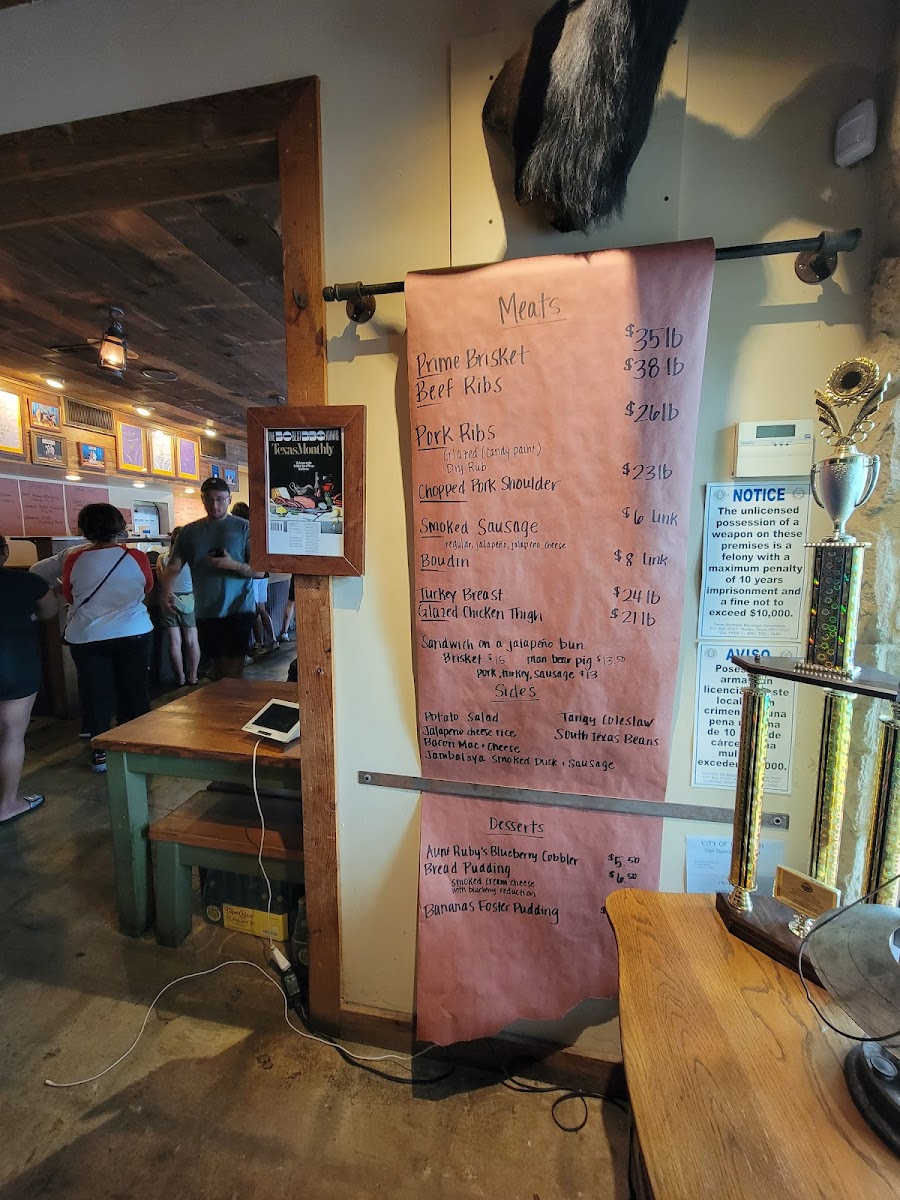 Meats
Prime Brisket $35lb
Beef Ribs $38 lb
Pork Ribs $26lb
Glazed (candy paint)
Dry Rub
Chopped Pork Shoulder $23lb
Smoked Sausage $6 Link
regular, jalapeño, jalapeño cheese
Boudin $8 Link
Turkey Breast $24 lb
Glazed Chicken Thigh $21 lb
Sandwich on a jalapeño bun
Brisket $15 man bear pig $13.50
pork, turkey, sausage $13
Sides
Potato Salad Tangy Coleslaw
Jalapeño cheese rice South Texas Beans
Bacon Mac + Cheese
Jambalaya Smoked Duck + Sausage
Desserts
Aunt Ruby's Blueberry Cobbler $5.50
Bread Pudding $6.50
smoked cream cheese
with blueberry reduction
Bananas Foster Pudding $
TexasMonthly
NOTICE
The unlicensed
possession of a
weapon on these
premises is a
felony with a
maximum penalty
of 10 years
imprisonment and
a fine not to
exceed $10,000.
AVISO
CITY OF